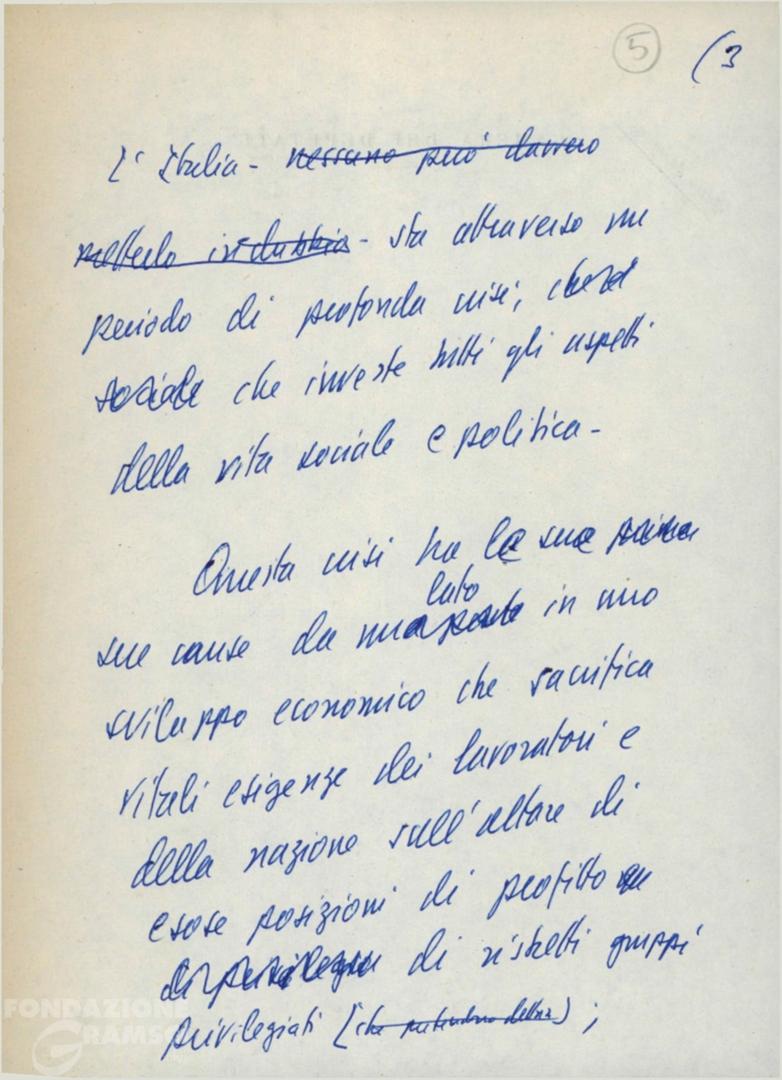 5 (3
L'Italia - nessuno può davvero
metterlo in dubbio - sta attraverso un
periodo di profonda crisi,
sociale che investe tutti gli aspetti
della vita sociale e politica -
Questa crisi ha le sue
lato
sue cause da una parte in uno
sviluppo economico che sacrifica
vitali esigenze dei lavoratori e
della nazione sull'altare di
esose posizioni di profitto
di ristretti gruppi
privilegiati (che) ;
FONDAZIONE
GRAMSCI